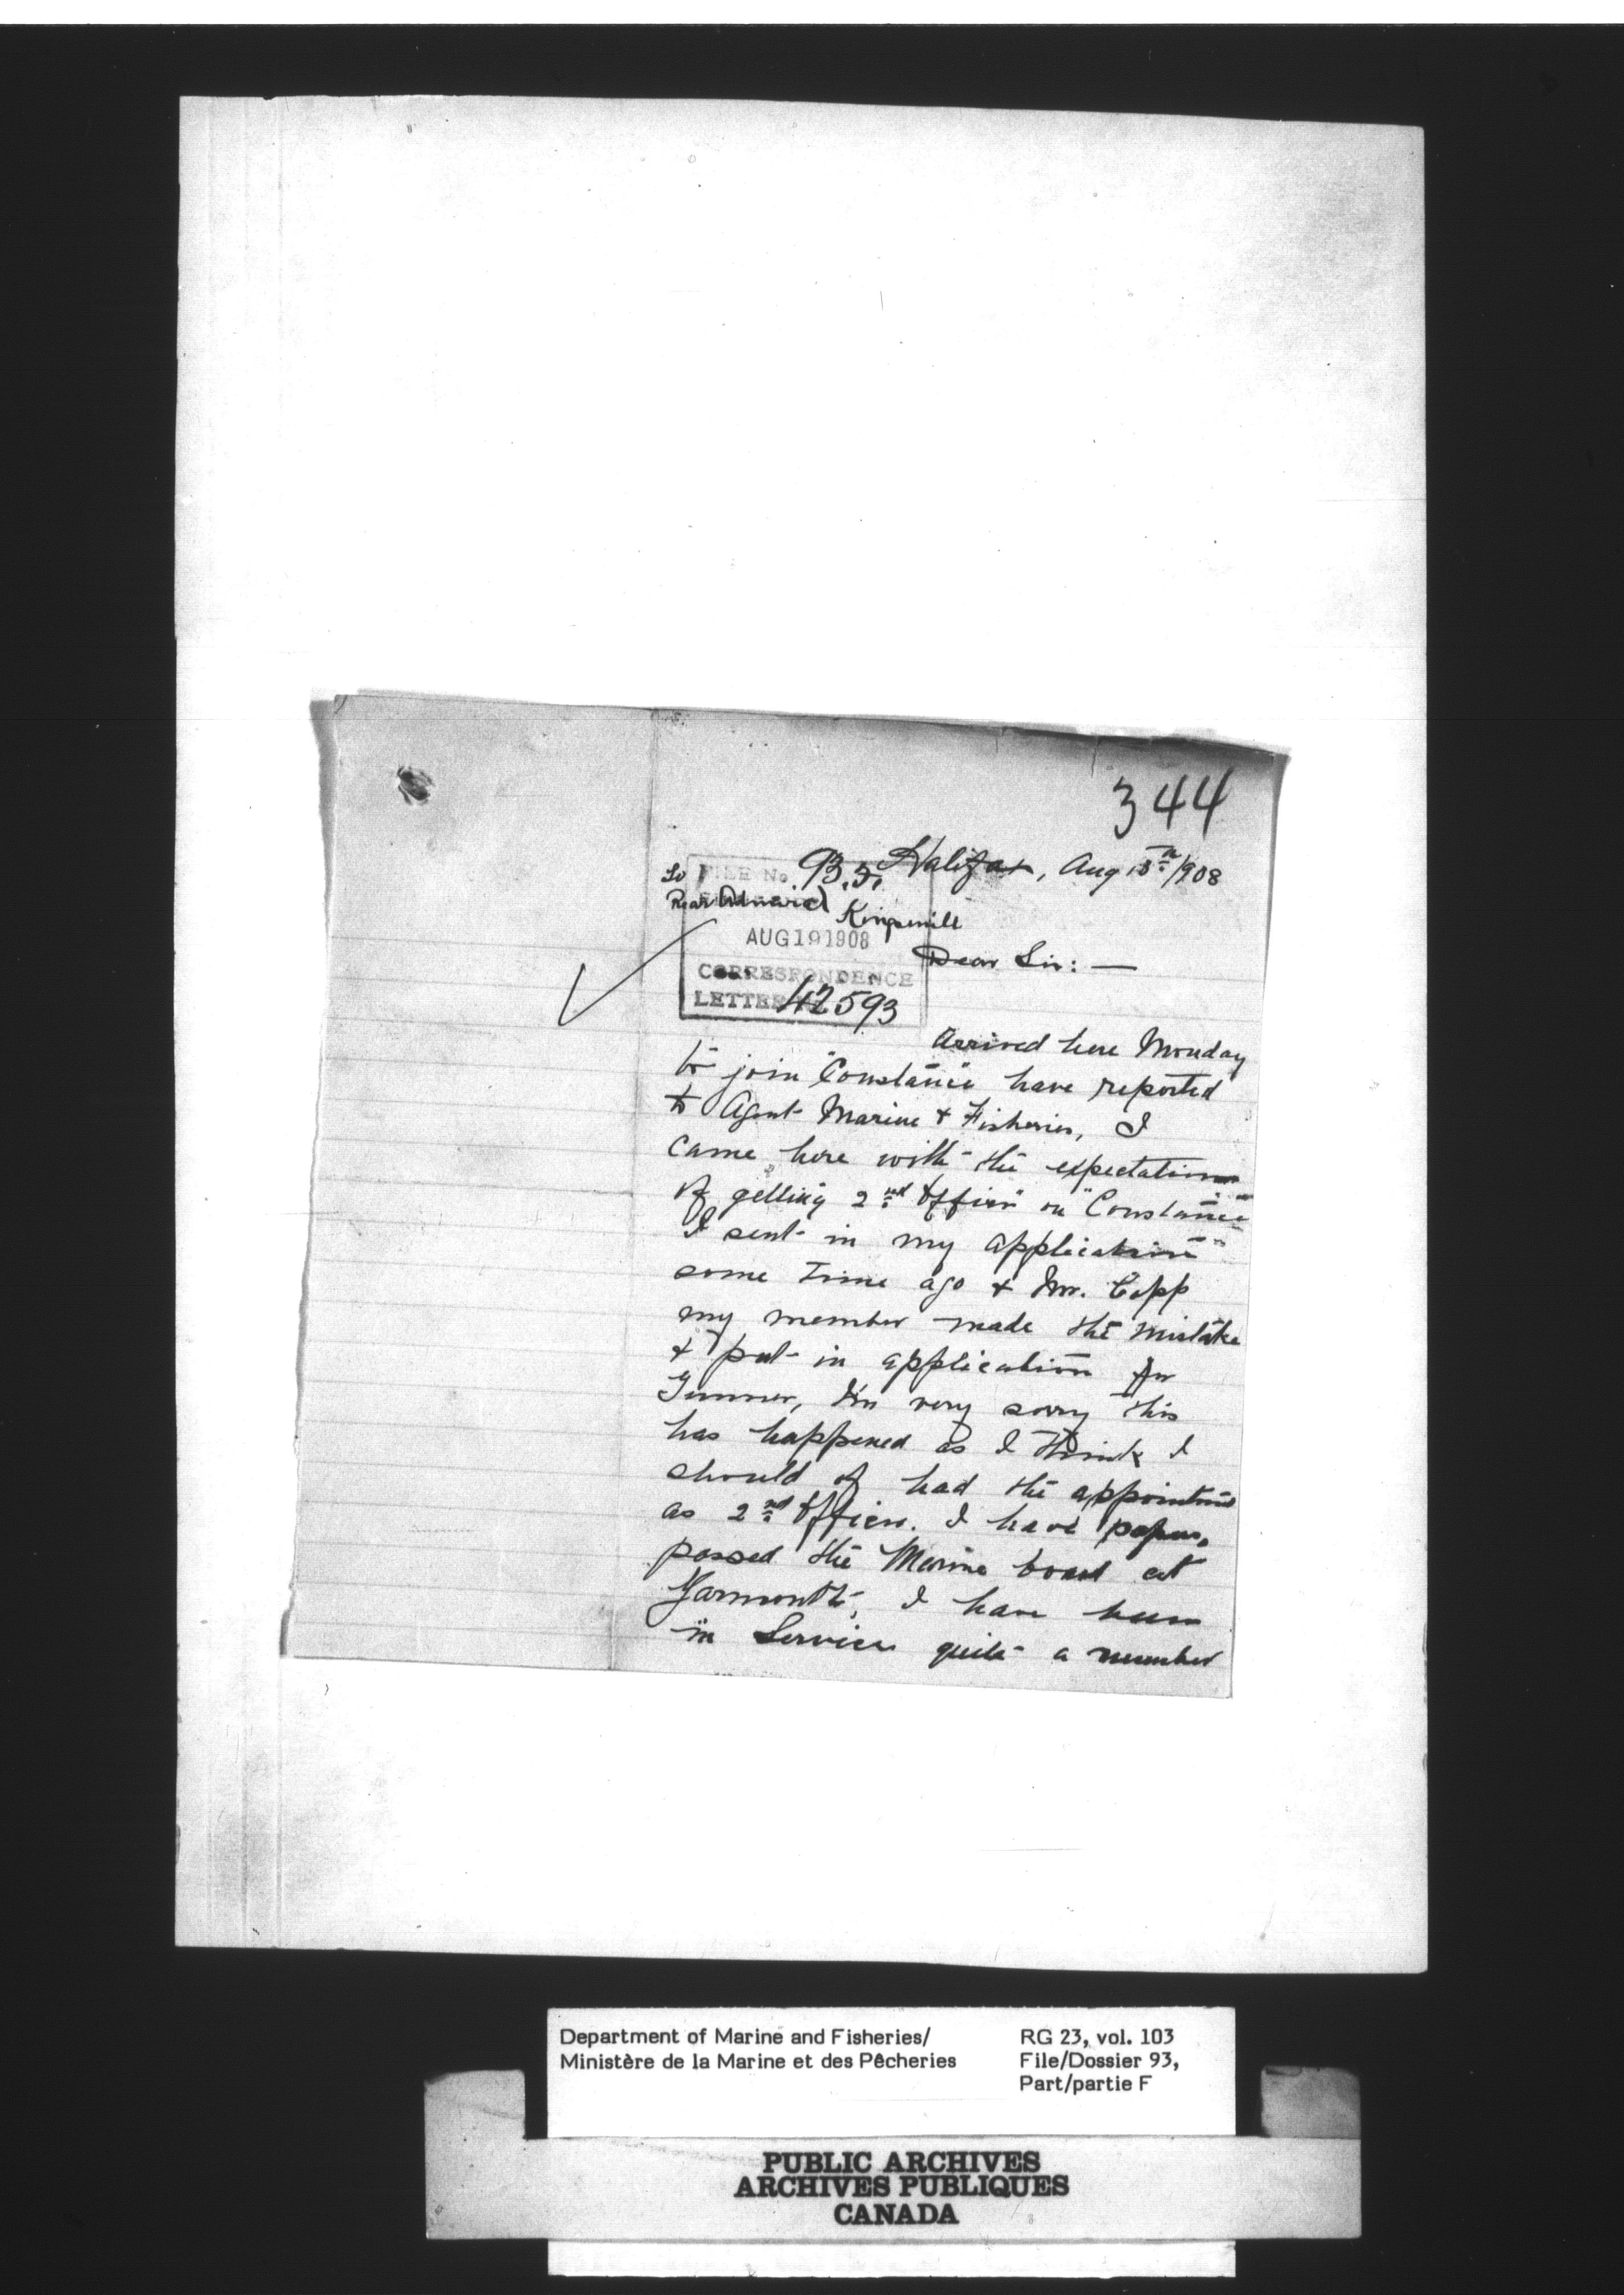 344
Halifax, Aug 15th/1908
To
FILE No. 93. F.
Rear Admiral Kingsmill
AUG 19 1908
Dear Sir: —
CORRESPONDENCE
LETTER 42593
Arrived here Monday
to join "Constance" have reported
to Agent Marine & Fisheries, I
came here with the expectation
of getting 2nd Officer on "Constance"
I sent in my application
some time ago & Mr. Copp
my member made the mistake
& put in application for
Gunner, I'm very sorry this
has happened as I think I
should of had the appointment
as 2nd Officer. I have papers,
passed the Marine board at
Yarmouth, I have been
in Service quite a number
Department of Marine and Fisheries/
Ministère de la Marine et des Pêcheries
RG 23, vol. 103
File/Dossier 93,
Part/partie F
PUBLIC ARCHIVES
ARCHIVES PUBLIQUES
CANADA